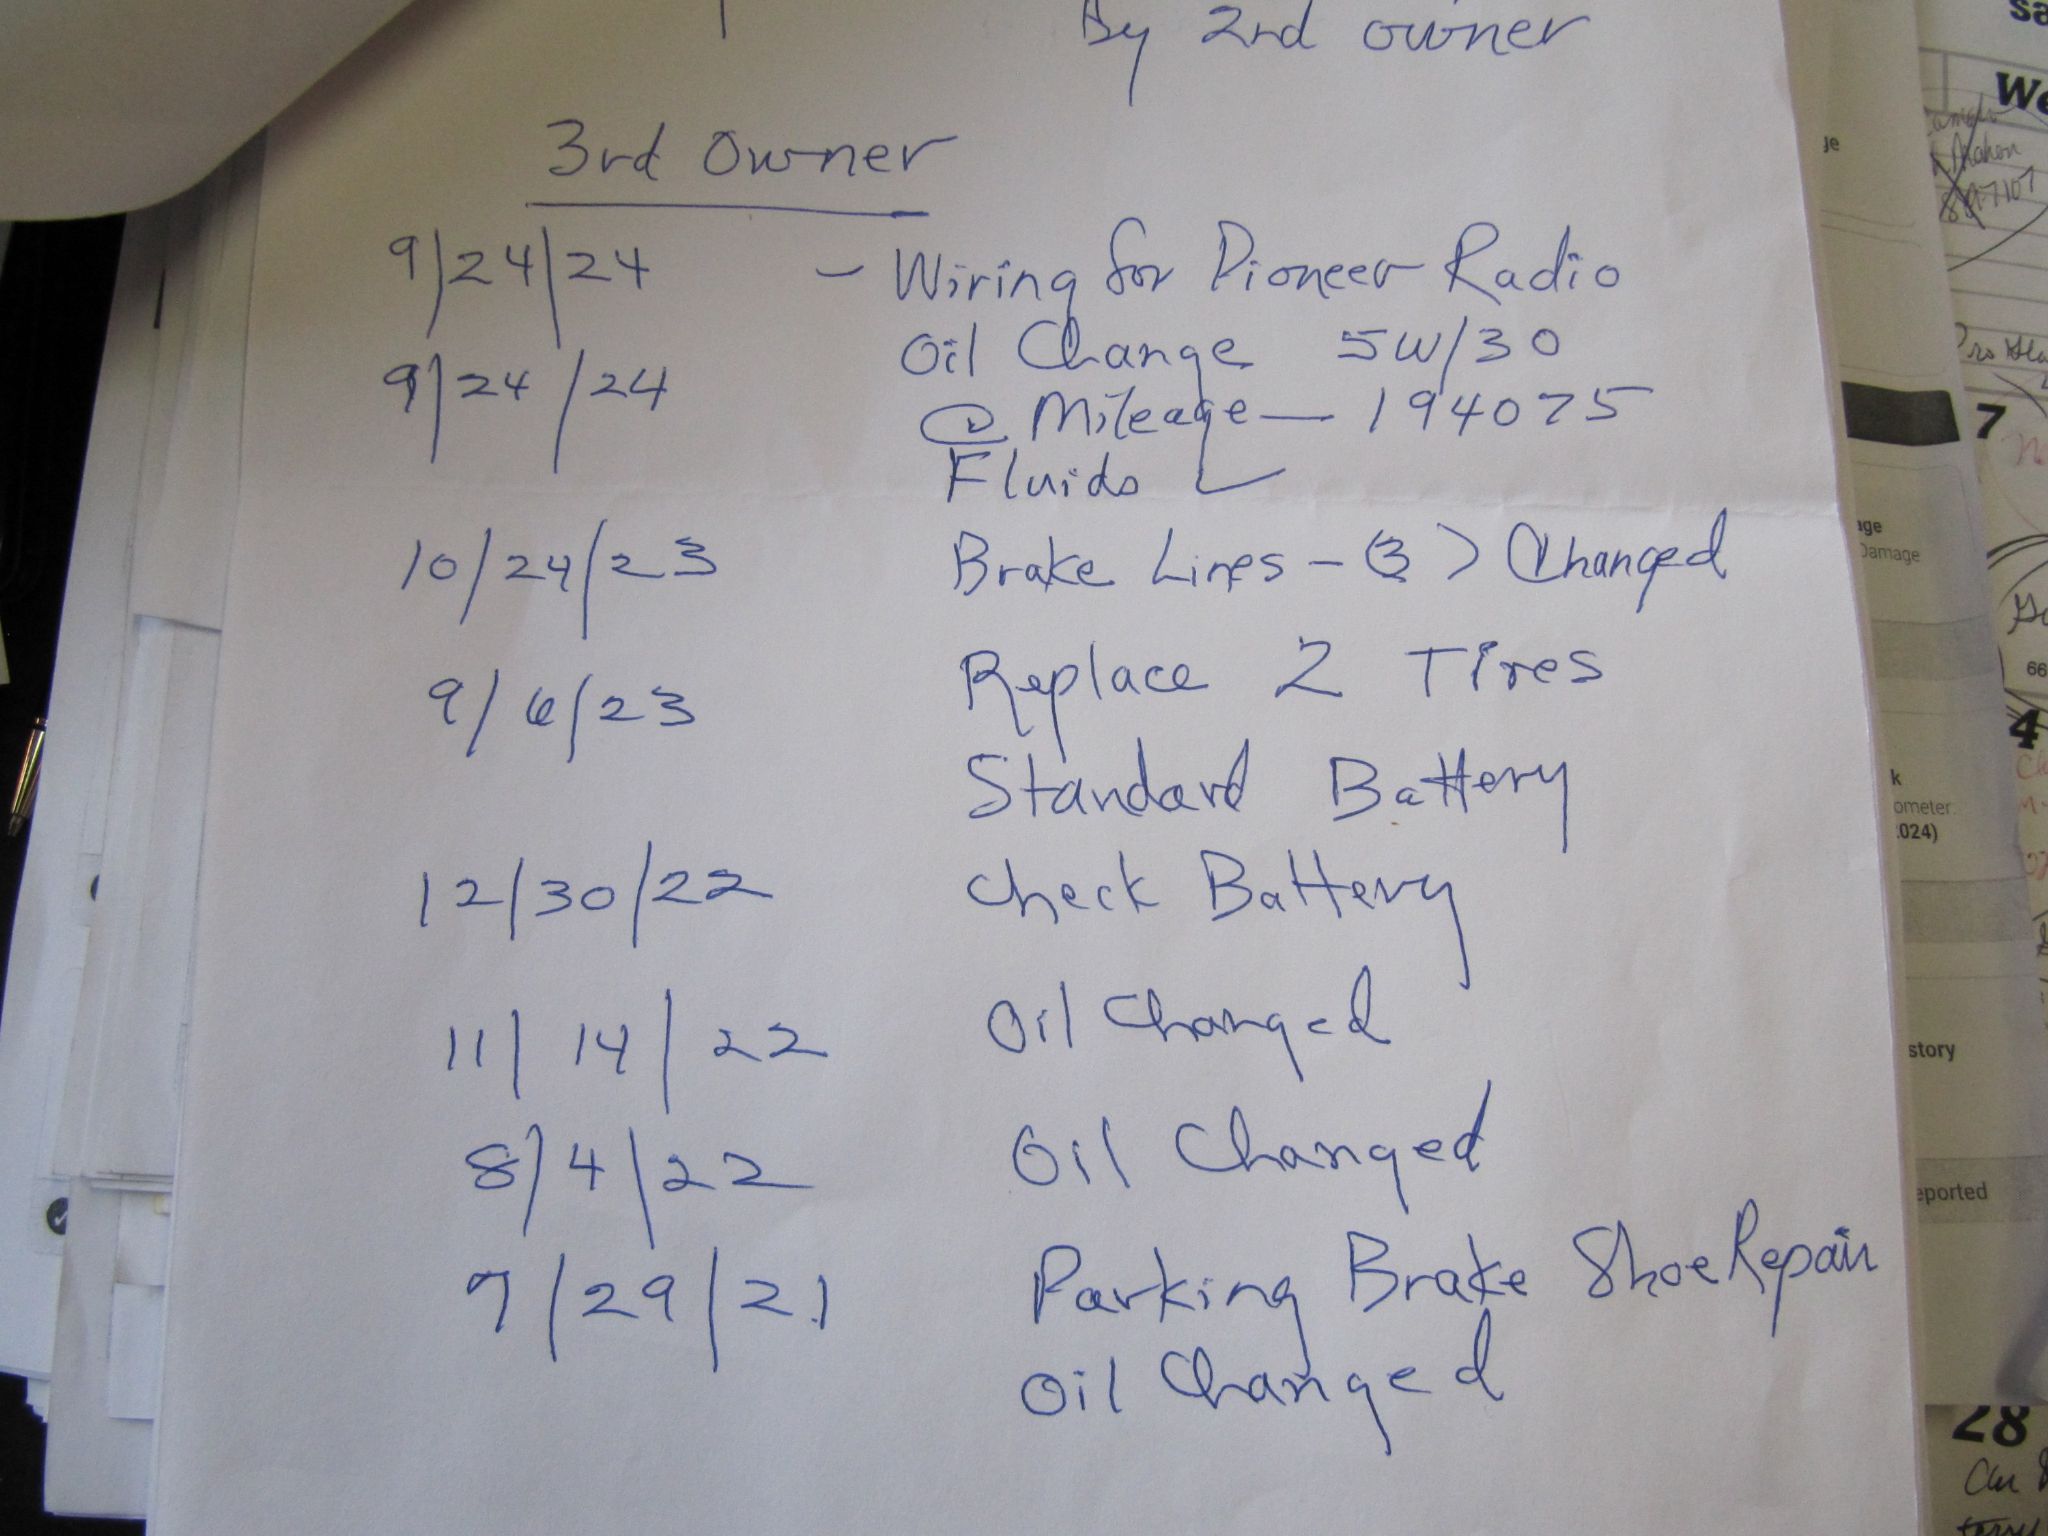 By 2nd owner
3rd Owner
9/24/24 - Wiring for Pioneer Radio
9/24/24 Oil Change 5W/30
@ Mileage — 194075
Fluids ✓
10/24/23 Brake Lines - (3) > Changed
9/6/23 Replace 2 Tires
Standard Battery
12/30/22 Check Battery
11/14/22 Oil Changed
8/4/22 Oil Changed
7/29/21 Parking Brake Shoe Repair
Oil Changed
sa
We
Mahon
7
ge
age
Damage
66
4
k
ometer
024)
story
eported
28